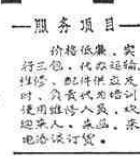 —服务项目—
价格低廉，实
行三包，代办运输，
维修、配件供应及
时，负责代为培训
使用维修人员，欢
迎来人、来函、来
电洽谈订货。